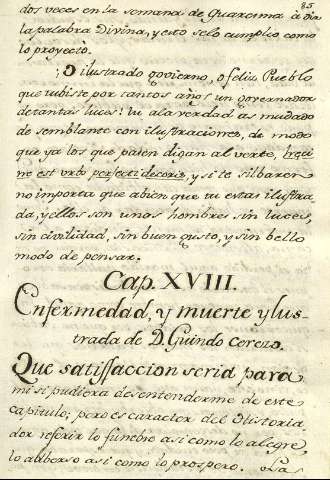 85
dos veces en la semana de Quaresma à oir
la palabra Divina, y esto selo cumplio como
lo proyecto.
¡O ilustrado govierno, o feliz Pueblo
que tubiste por tantos años un governador
detantas luces! tu ala verdad as mudado
de semblante con ilustraciones, de modo
que ya los que pasen digan al verte,
ne est urbs perfecti decoris, y si te silbaren
no importa que abien que tu estas ilustra
da, y ellos son unos hombres sin luces,
sin civilidad, sin buen gusto, y sin bello
modo de pensar.
Cap. XVIII.
Enfermedad, y muerte ylus-
trada de D. Guindo Cerezo.
Que satisfaccion seria para
mi si pudiera desentenderme de este
capitulo; pero es caracter del Historia
dor referir lo funebre asi como lo alegre,
lo adberso asi como lo prospero. La